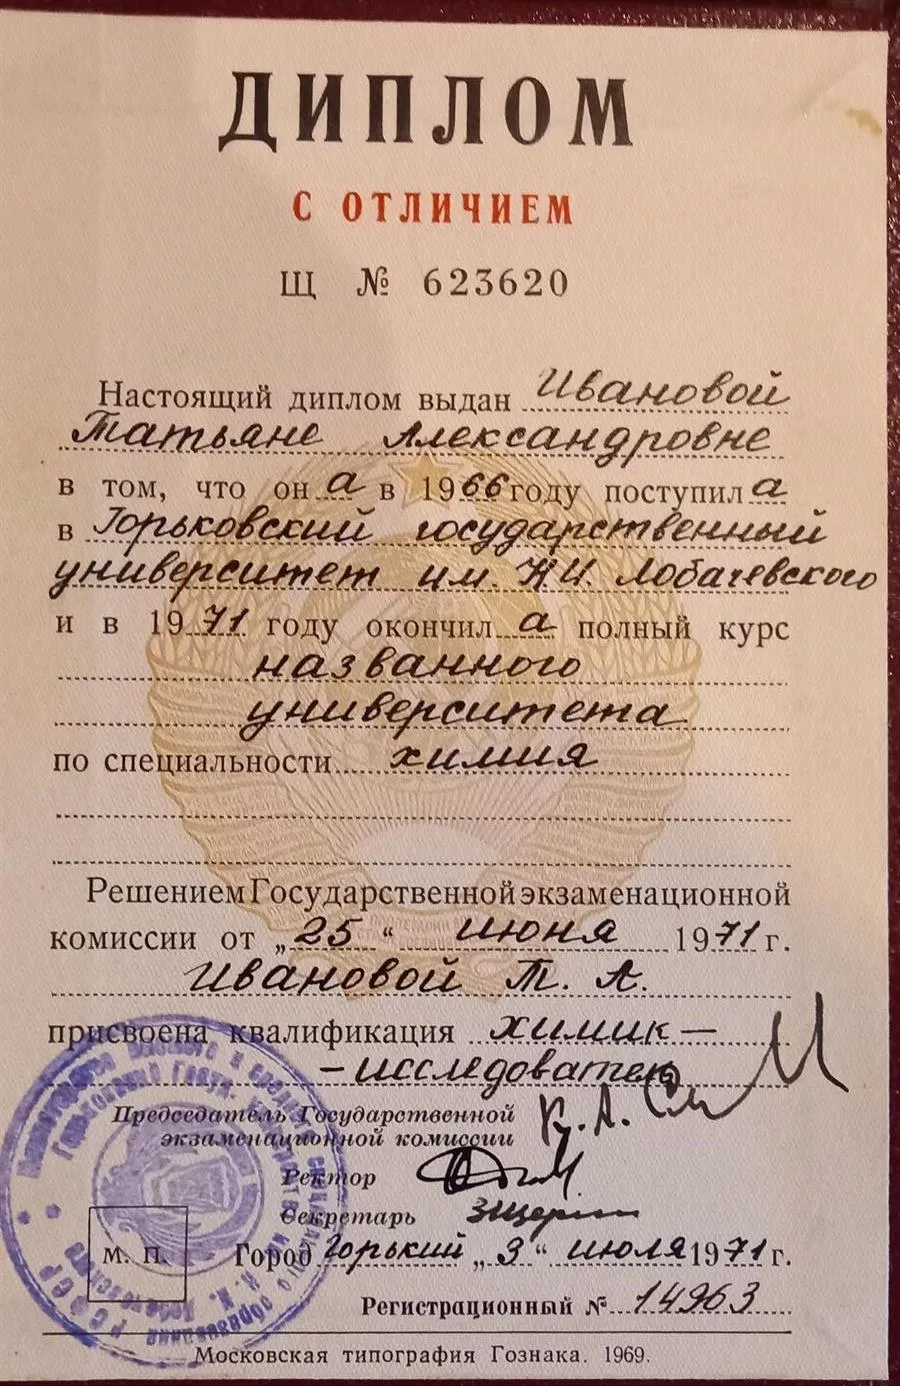 ДИПЛОМ
С ОТЛИЧИЕМ
Щ № 623620
Настоящий диплом выдан Ивановой
Татьяне Александровне
в том, что он а в 1966 году поступил а
в Горьковский государственный
университет им. Н.И. Лобачевского
и в 1971 году окончил а полный курс
названного
университета
по специальности химия
Решением Государственной экзаменационной
комиссии от „25“ июня 1971 г.
Ивановой Т. А.
присвоена квалификация химик –
– исследователь
Председатель Государственной
экзаменационной комиссии
Ректор
Секретарь
М. П.
Город Горький „3“ июля 1971 г.
Регистрационный № 14963
Московская типография Гознака. 1969.